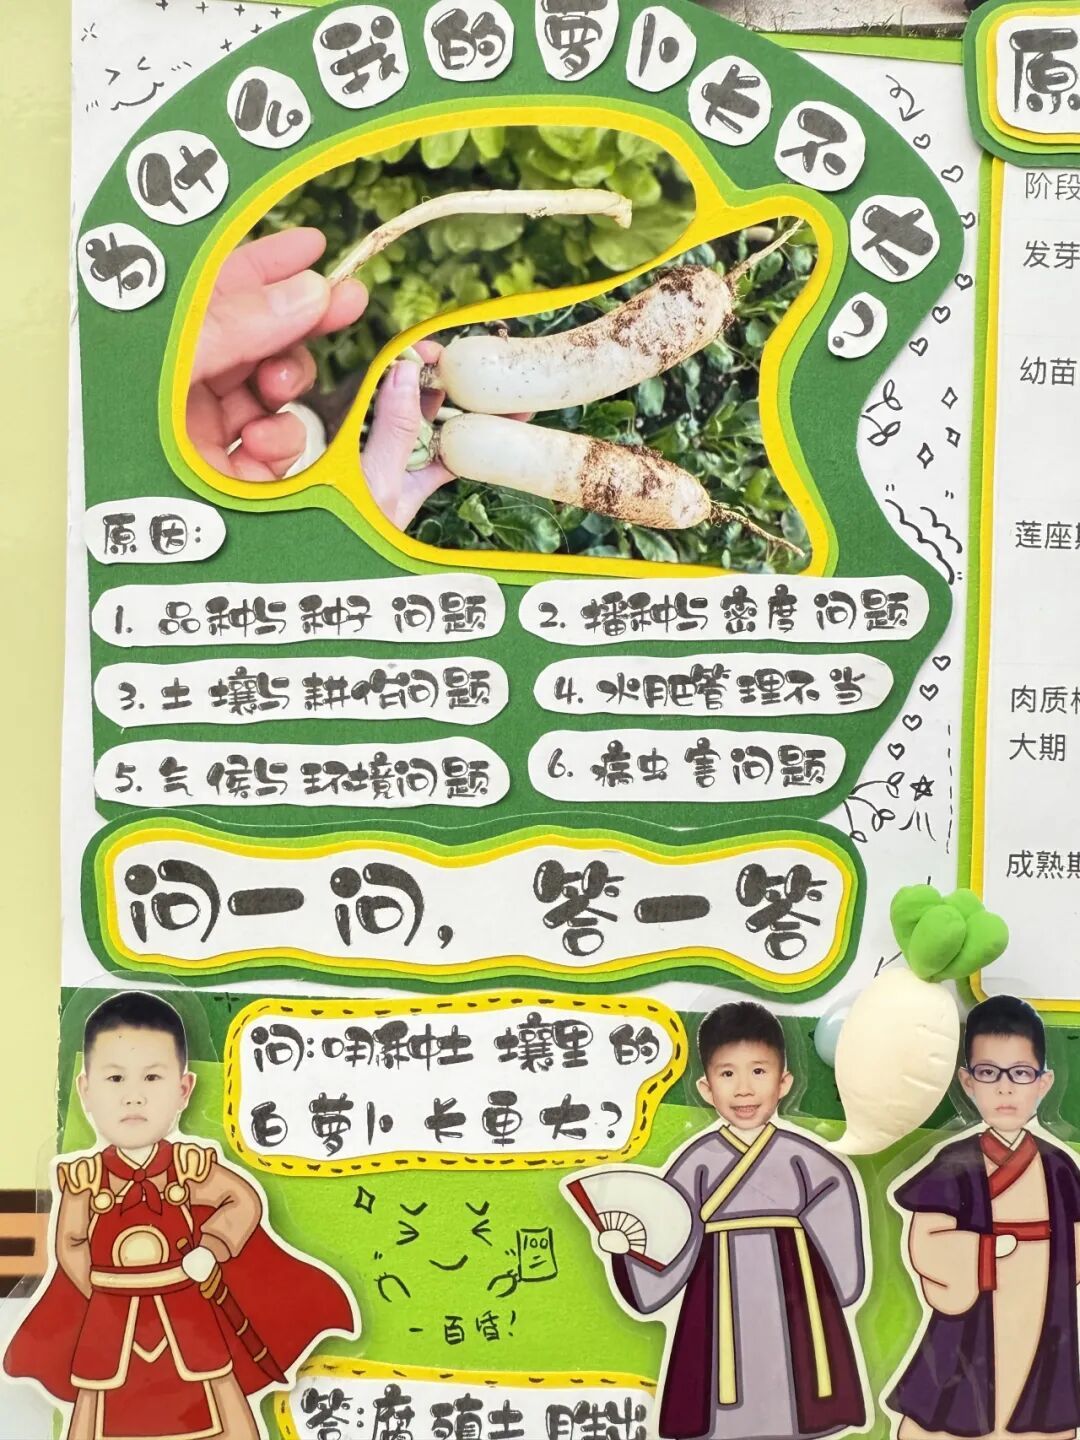 为什么我的萝卜长不大?
原因:
1. 品种与种子问题
2. 播种与密度问题
3. 土壤与耕作问题
4. 水肥管理不当
5. 气候与环境问题
6. 病虫害问题
问一问，答一答
问:哪种土壤里的
白萝卜长更大?
100
一百昏!
答:腐殖土
原
阶段
发芽
幼苗
莲座期
肉质
大期
成熟期